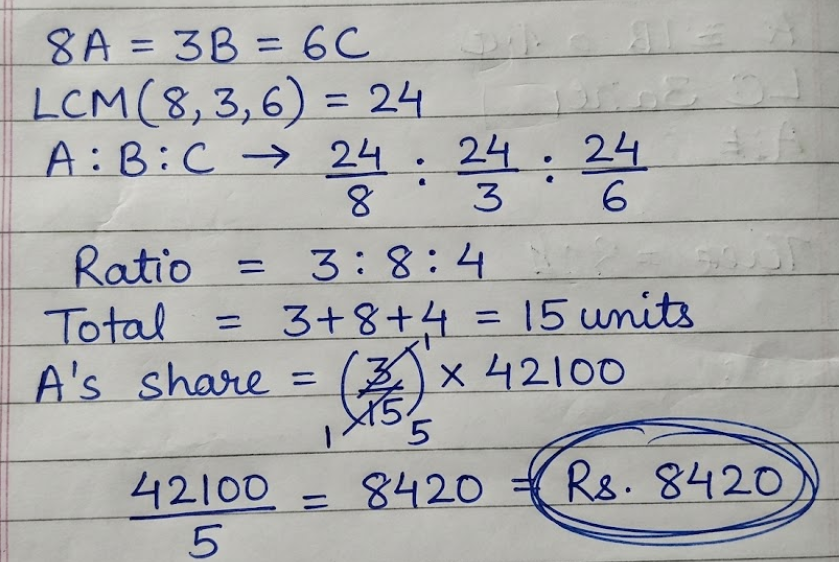 8A = 3B = 6C
LCM(8,3,6) = 24
A : B : C → 24/8 : 24/3 : 24/6
Ratio = 3 : 8 : 4
Total = 3+8+4 = 15 units
A's share = (3/15) × 42100
1 1 5
42100/5 = 8420 = Rs. 8420